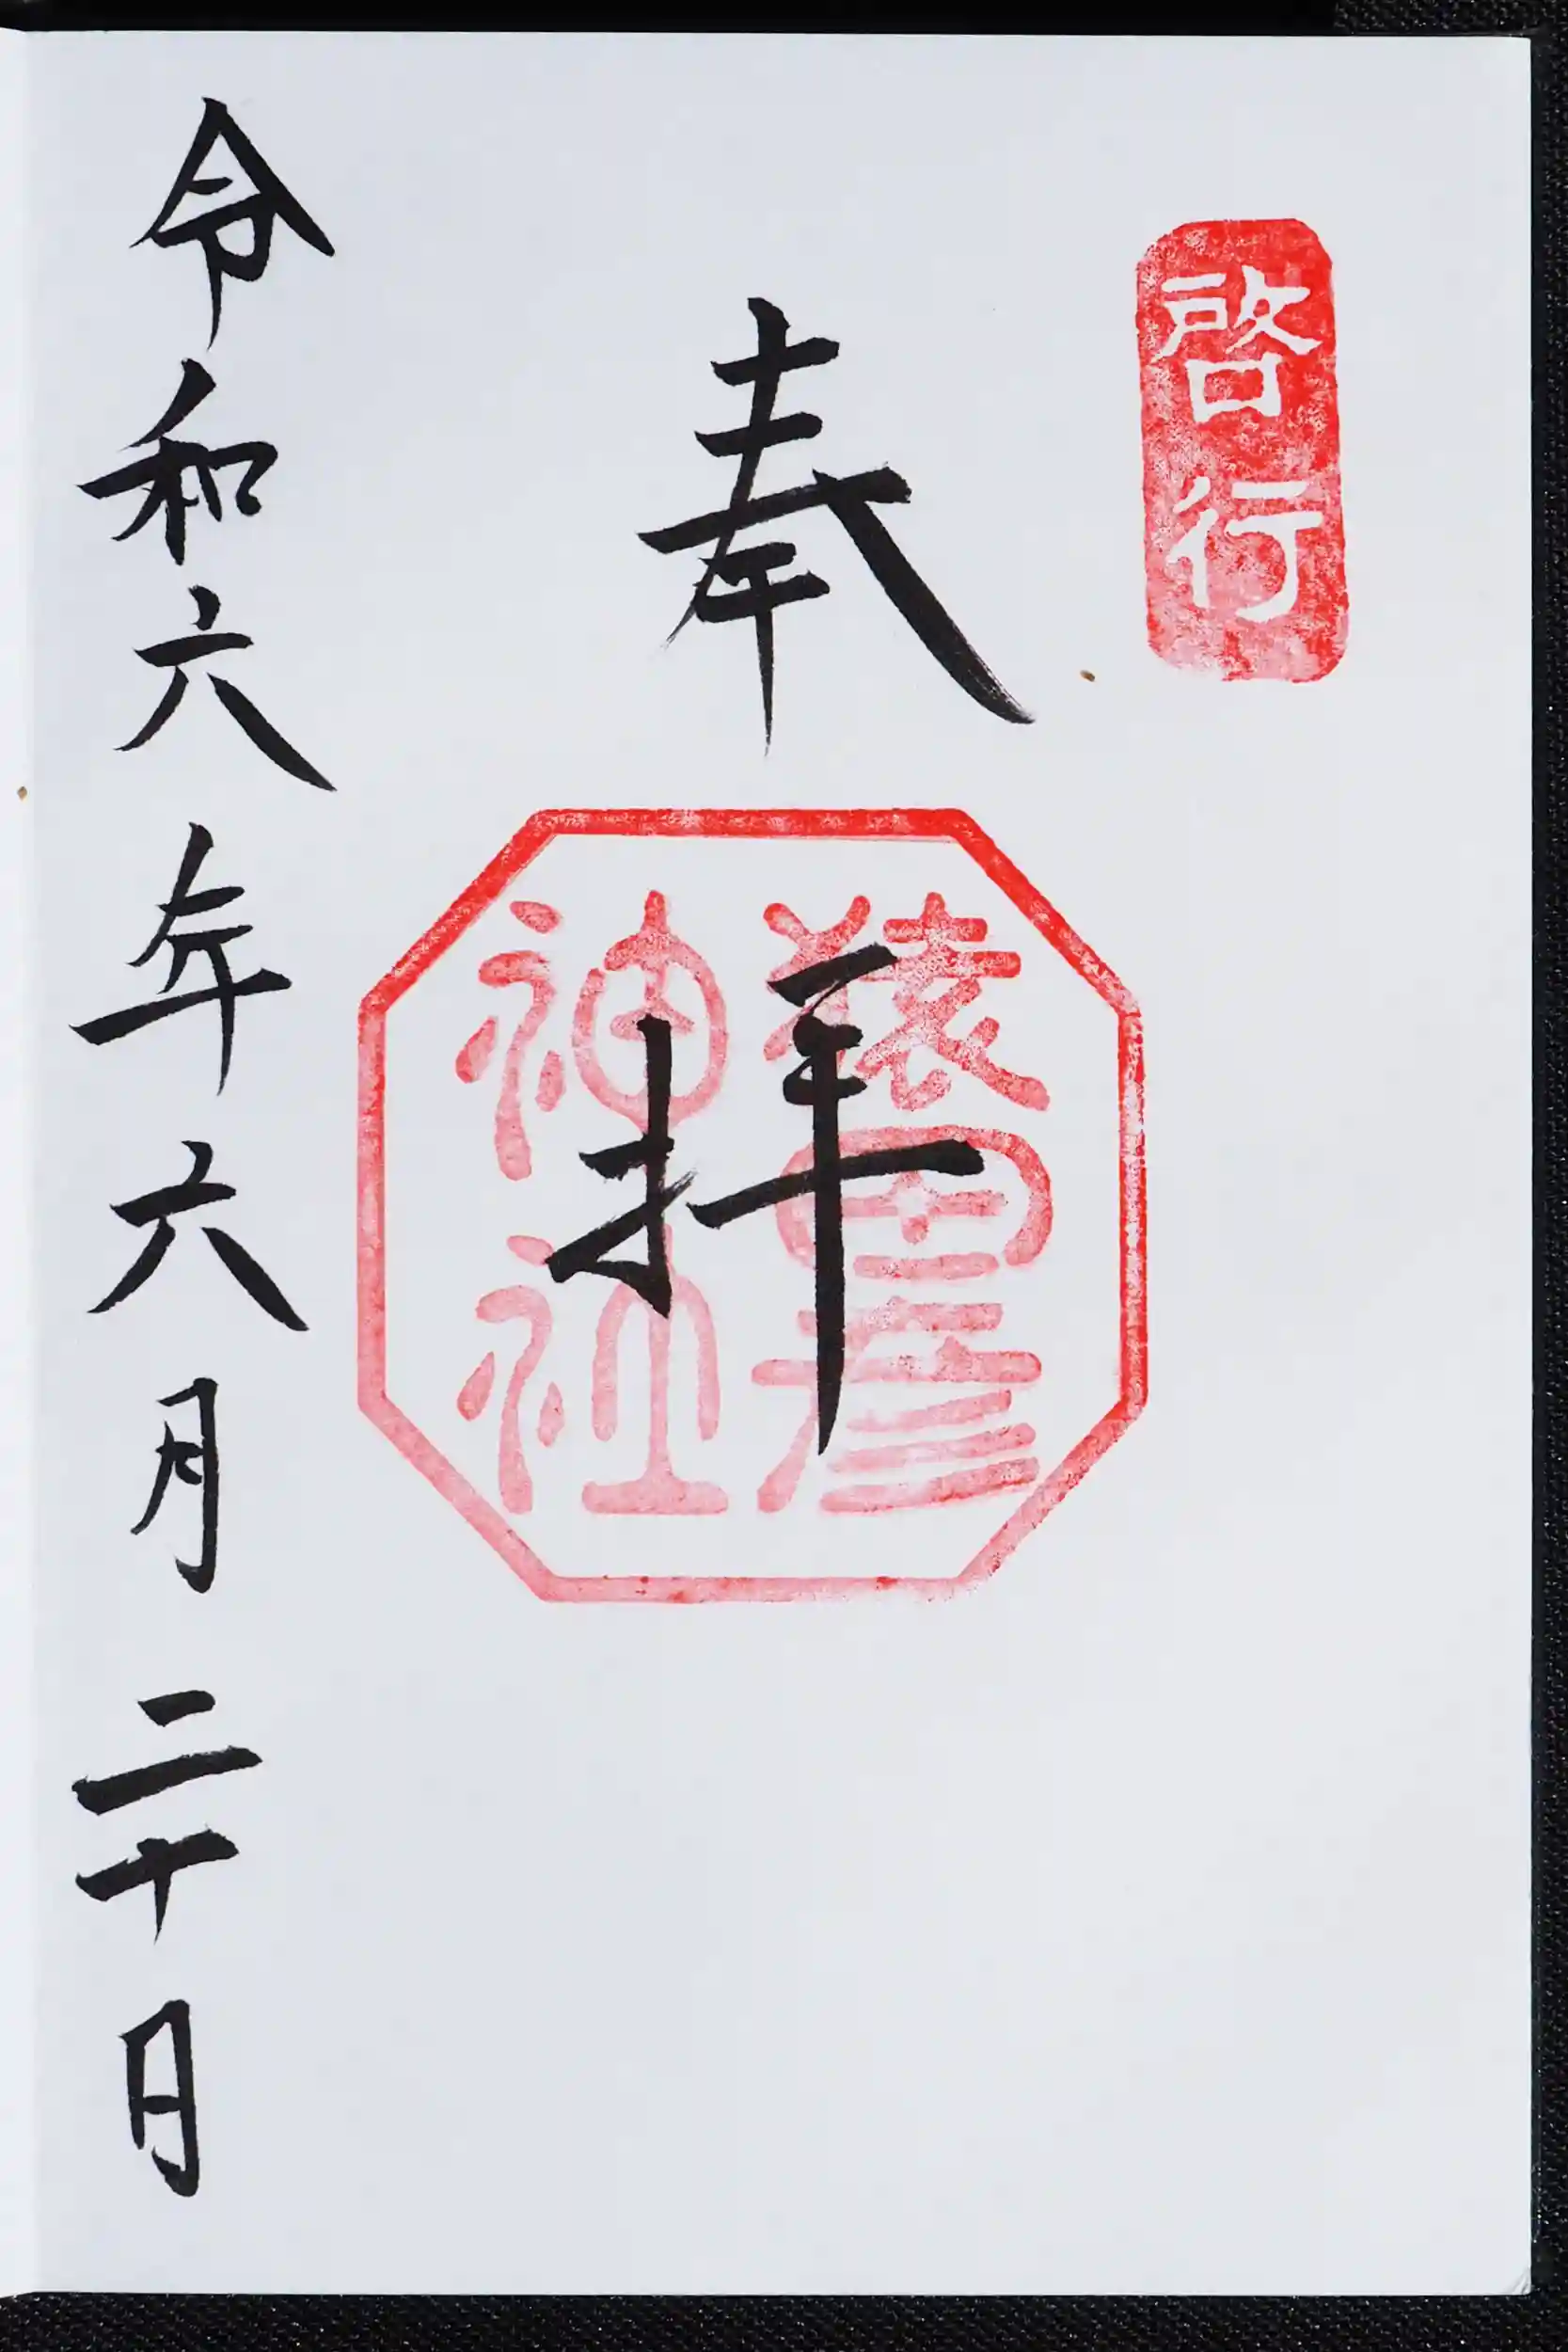 啓行
奉拝
猿田彦
神社
令和六年六月二十日